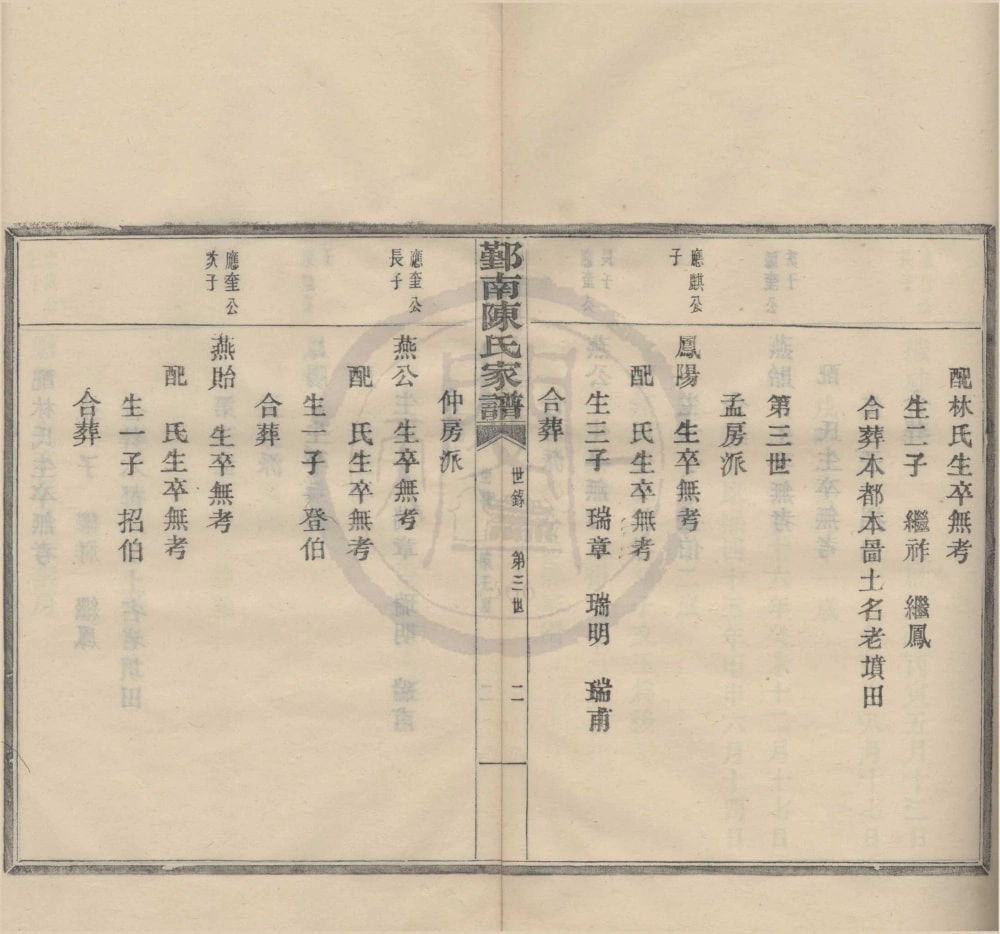 配林氏生卒無考
生二子　繼祚　繼鳳
合葬本都本啚土名老墳田
第三世
孟房派
應麒公子
鳳陽　生卒無考
配　氏生卒無考
生三子　瑞章　瑞明　瑞甫
合葬
鄞南陳氏家譜　世錄　第三世　二
仲房派
應奎公長子
燕公　生卒無考
配　氏生卒無考
生一子登伯
合葬
應奎公次子
燕貽　生卒無考
配　氏生卒無考
生一子招伯
合葬